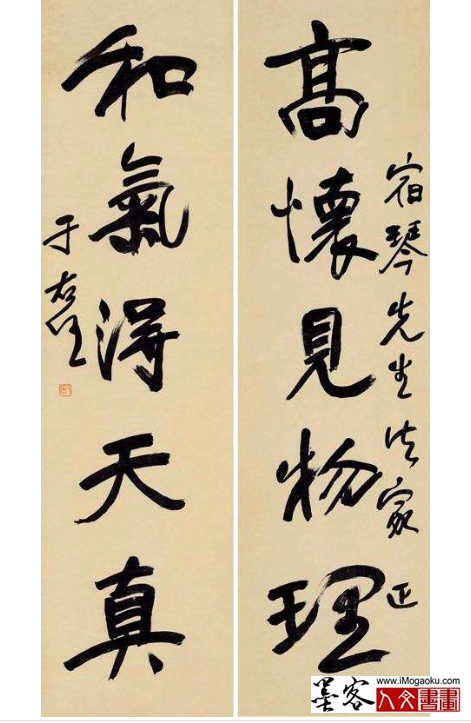 高懷見物理
宿琴先生法家正
和氣得天真
于右任
www.iMogaoku.com
墨客
人文書畫